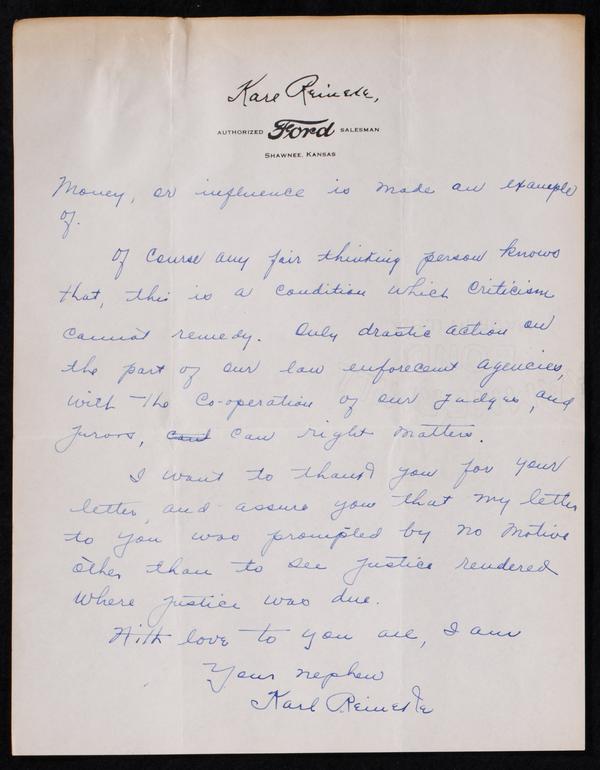 Karl Reineke,
AUTHORIZED Ford SALESMAN
SHAWNEE, KANSAS
Money, or influence is made an example
of.
Of course any fair thinking person knows
that, this is a condition which criticism
cannot remedy. Only drastic action on
the part of our law enforcement agencies,
with the co-operation of our judges, and
jurors, cant can right matters.
I want to thank you for your
letter, and assure you that my letter
to you was prompted by no motive
other than to see justice rendered
where justice was due.
With love to you all, I am
Your nephew
Karl Reineke